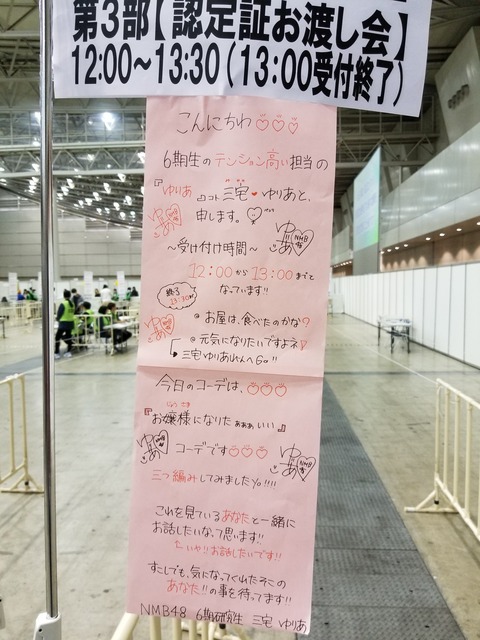 第3部【認定証お渡し会】
12:00〜13:30(13:00受付終了)
こんにちわ
6期生のテンション高い担当の
『ゆりあ』コト三宅♥ゆりあと、
申します。
ゆりあ NMB48
〜受け付け時間〜
12:00から13:00までと
なっています!!
終了 13:30
@お昼は、食べたのかな?
@元気になりたいですよネ?
三宅ゆりあreaんへGo!!
今日のコーデは、
『お嬢様になりたぁぁぁぃぃぃ』
じょうさま
コーデです
ゆりあ NMB48
三つ編みしてみましたYo!!!!
これを見ているあなたと一緒に
お話したいなって思います!!
いや!!お話したいです!!
すこしでも、気になってくれたそこの
あなた!!の事を待ってます!!
NMB48 6期研究生 三宅 ゆりあ